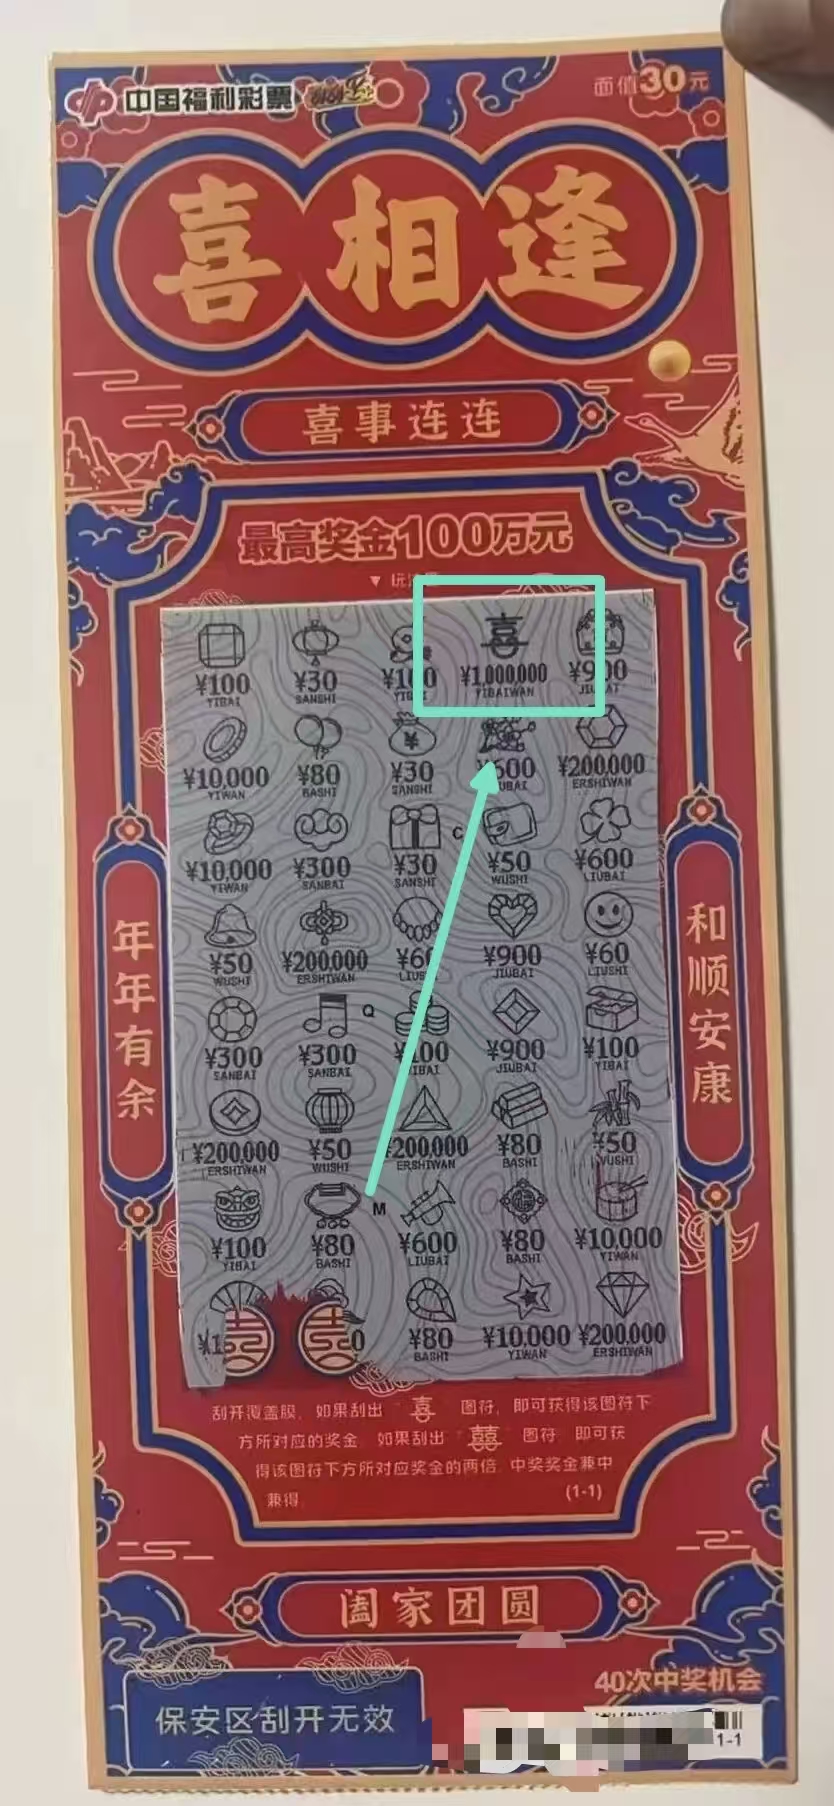 中国福利彩票 刮刮乐
面值30元
喜相逢
喜事连连
最高奖金100万元
¥100 ¥30 ¥100 ¥1,000,000 ¥900
YIBAI SANSHI YIBAI YIBAIWAN JIUBAI
¥10,000 ¥80 ¥30 ¥600 ¥200,000
YIWAN BASHI SANSHI ERSHIWAN
¥10,000 ¥300 ¥30 C ¥50 ¥600
YIWAN SANBAI SANSHI WUSHI LIUBAI
¥50 ¥200,000 ¥60 ¥900 ¥60
WUSHI ERSHIWAN JIUBAI LIUSHI
¥300 ¥300 Q ¥900 ¥100
SANBAI SANBAI JIUBAI YIBAI
¥200,000 ¥50 ¥200,000 ¥80 ¥50
ERSHIWAN WUSHI ERSHIWAN BASHI WUSHI
¥100 ¥80 M ¥600 ¥80 ¥10,000
YIBAI BASHI LIUBAI BASHI YIWAN
¥80 ¥10,000 ¥200,000
BASHI YIWAN ERSHIWAN
年年有余
和顺安康
刮开覆盖膜，如果刮出“喜”图符，即可获得该图符下
方所对应的奖金，如果刮出“囍”图符，即可获
得该图符下方所对应奖金的两倍，中奖奖金兼中
兼得。 (1-1)
阖家团圆
40次中奖机会
保安区刮开无效
1-1